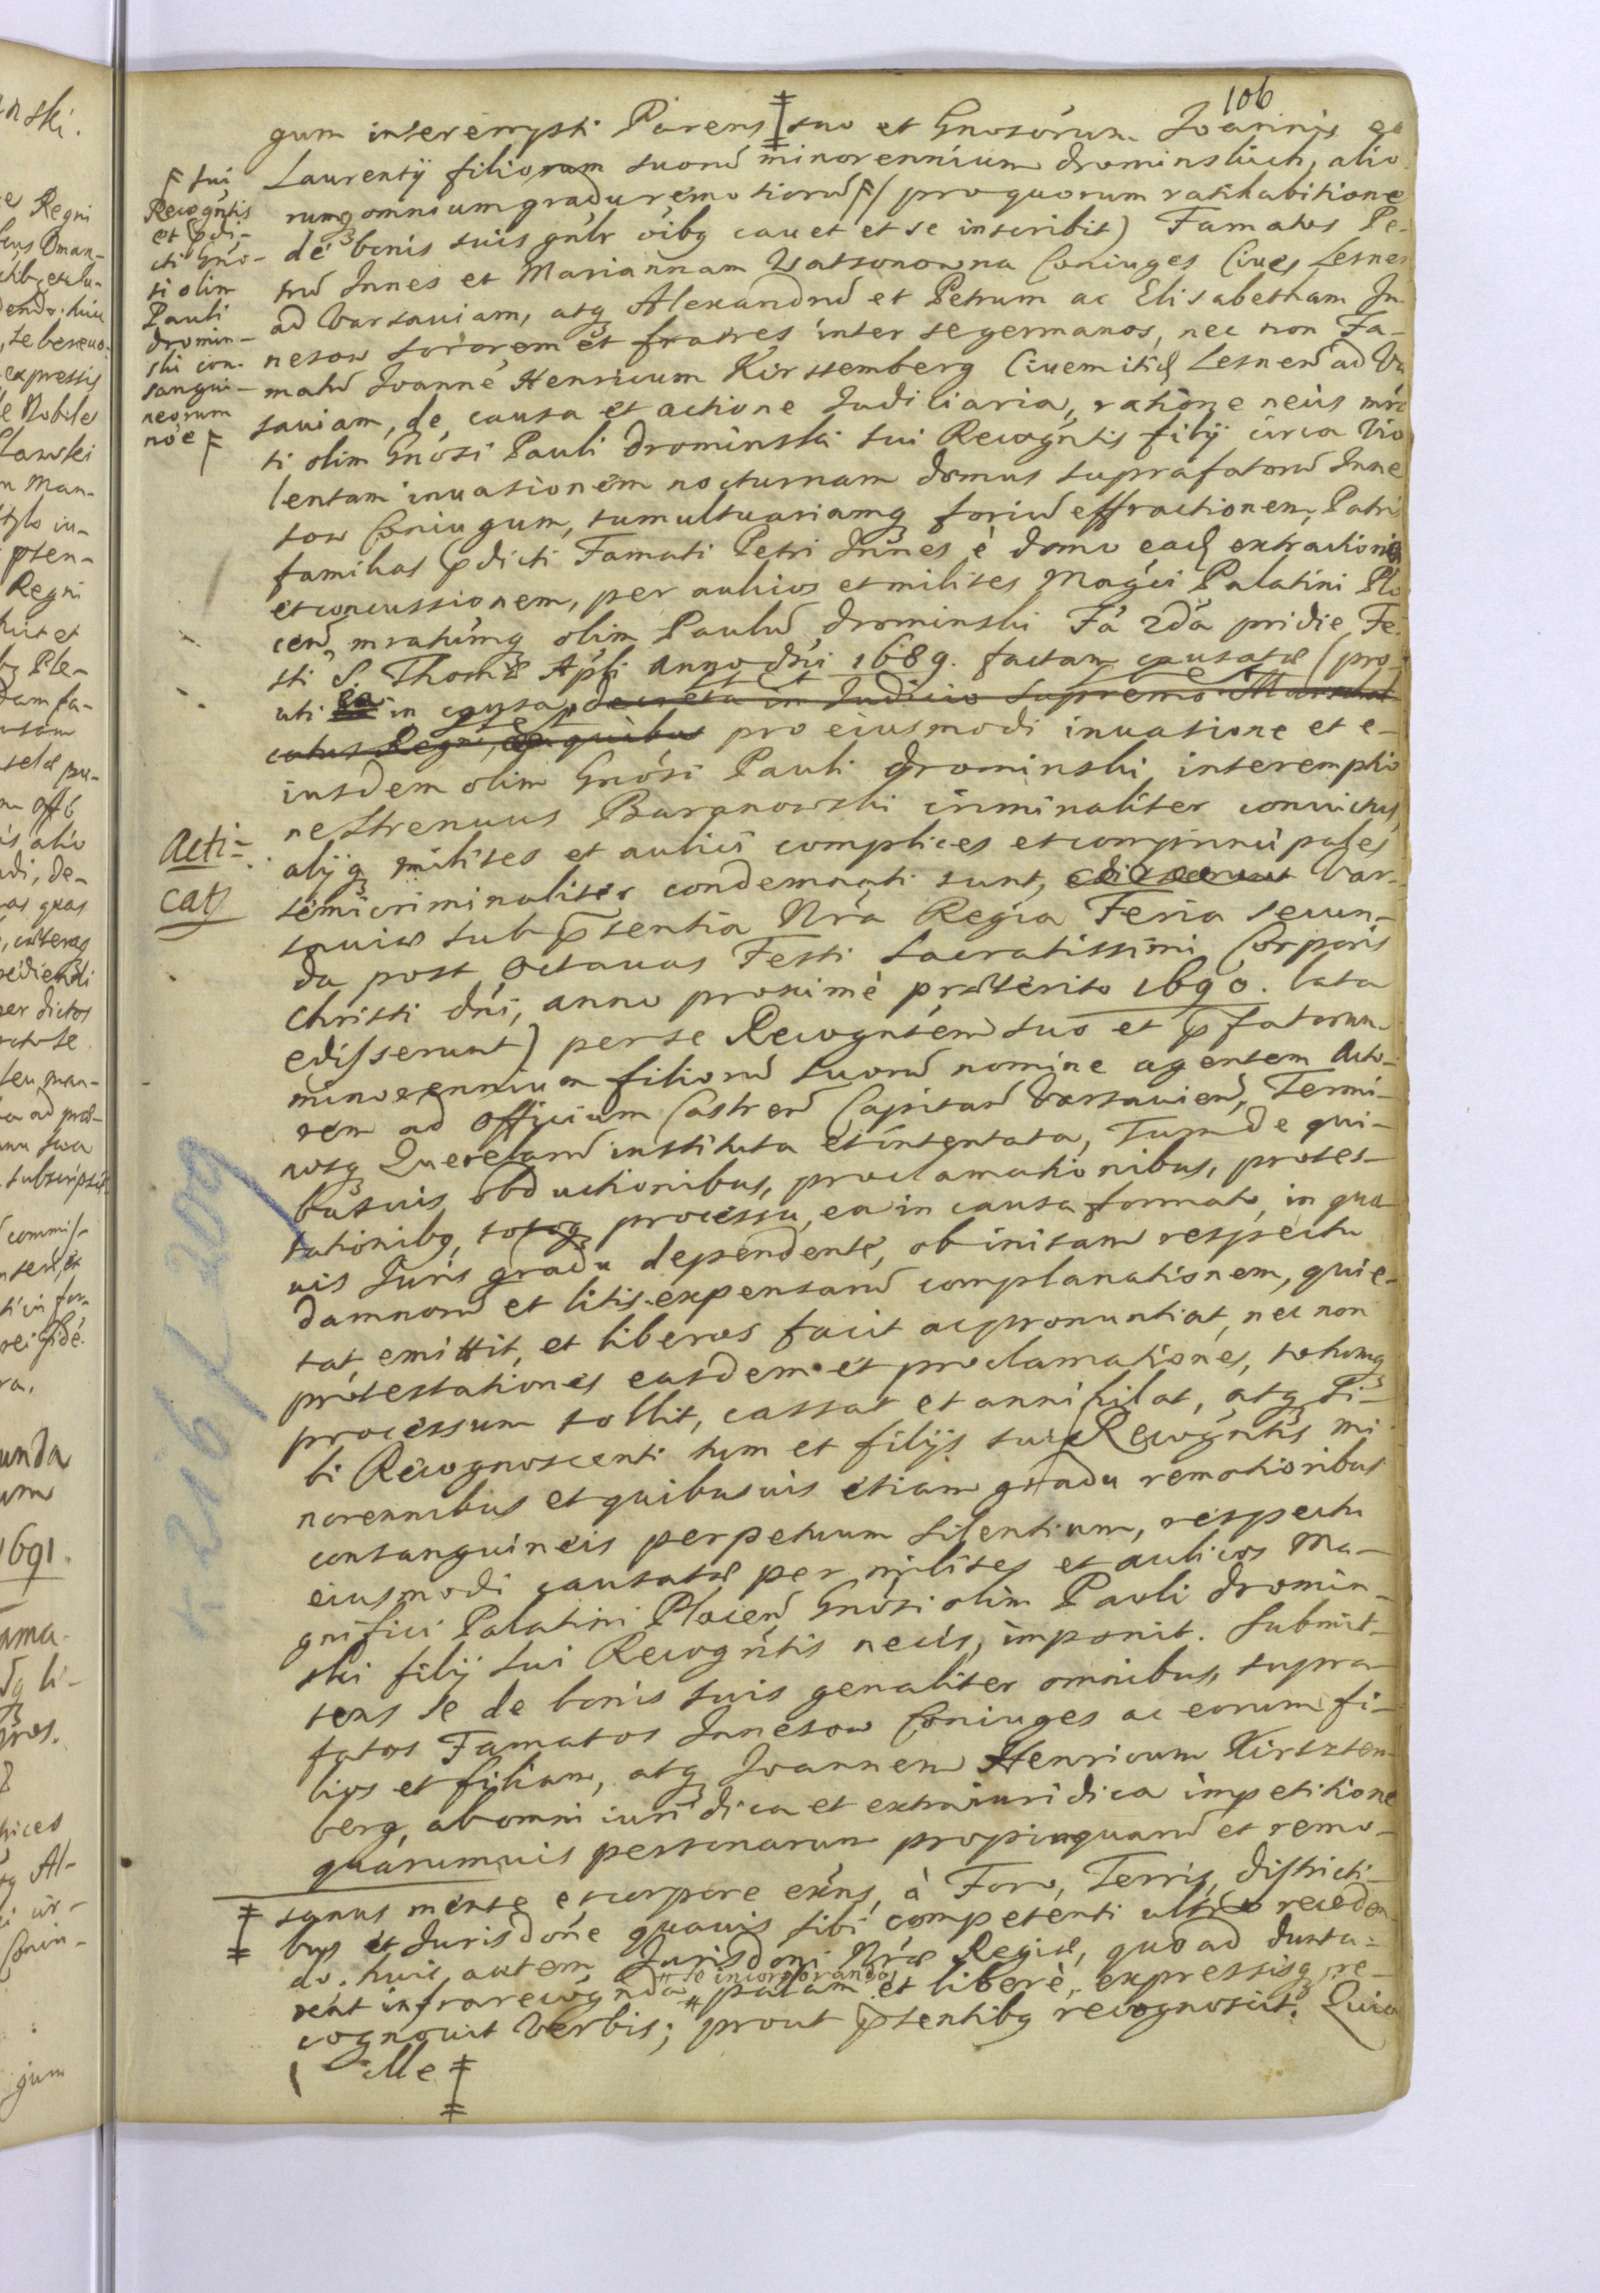 106
gum interempti Parens ‡ suo et Gnosorum Joannis et
Laurentij filiorum suorū minorennium drominskich, alio
rumq omnium gradu remotiorū F/ pro quorum ratihabitione
de bonis suis gńlr oibq cauet et se inscribit) Famatos Pe-
trū Innes et Mariannam Watsonowna Coniuges Ciues Lesnen
ad Varsauiam, atq Alexandrū et Petrum ac Elisabetham In
nesow sororem et fratres inter se germanos, nec non Fa-
matū Joannē Henricum Kirssemberg Ciuem itid Lesneń ad Var
sauiam, de causa et actione Judiciaria, ratione necis mra
ti olim Gnosi Pauli drominski sui Recogńtis filij circa vio
lentam inuasionem nocturnam domus suprafatorū Inne
sow Coniugum, tumultuariamq foriū effractionem, Patris
familias pdicti Famati Petri Innes è domo ead extractionē
et concussionem, per aulicos et milites Magci Palatini Plo
ceń, mratumq olim Paulū drominski Fa 2da pridie Fe-
sti S. Thomæ Apli anno dńi 1689. factam causatæ (pro-
uti ea in causa decreta in Judicio Supremo Marschal
catus Regni, ex quibus pro eiusmodi inuasione et e-
iusdem olim Gnosi Pauli drominski interemptio
ne Strenuus Baranowski criminaliter conuictus,
alijq milites et aulici complices et comprincipales
semicriminaliter condemnati sunt, Var-
sauiæ sub psentia Nra Regia Feria secun-
da post Octauas Festi Sacratissimi Corporis
Christi dńi, anno proximè præterito 1690. lata
edisserunt) per se Recogńtem suo et pfatorum
minorennium filiorū suorū nomine agentem Acto-
rem ad officium Castreń Capitań Varsauień, Termi-
nosq Querelarū instituta et intentata, Tum de qui-
busuis obductionibus, proclamationibus, protes-
tationibq, totoq processu, ea in causa formato, in qua
uis Juris gradu dependente, ob initam respectu
damnorū et litis expensarū complanationem, quie-
tat, emittit, et liberos facit ac pronuntiat, nec non
protestationes easdem et proclamationes, totumq
processum tollit, cassat et annihilat, atq Si-
bi Recognoscenti tum et filijs sui Recogńtis mi
norennibus et quibusuis etiam gradu remotioribus
consanguineis perpetuum silentium, respectu
eiusmodi causatæ per milites et aulicos Ma-
gnifici Palatini Plocień, Gnosi olim Pauli dromin-
ski filij sui Recogńtis necis, imponit. Submit-
tens se de bonis suis genaliter omnibus, supra-
fatos Famatos Innesow Coniuges ac eorum fi-
lios et filiam, atq Joannem Henricum Kirszten
berg, ab omni iuridica et extraiuridica impetitione
quarumuis personarum propinquarū et remo-
‡ sanus mente et corpore exńs, à Foro, Terris, districti-
bus et Jurisdone quauis sibi competenti ultro receden-
do. huic autem Jurisdoni Nræ Regiæ, quo ad dunta-
xat infrarecognda # se incorporando, palam et liberè, expressisq re-
cognouit Verbis; prout pstentibq recognoscit. Quia
ille ‡
F sui
Recogńtis
et pdi-
cti Gno-
si olim
Pauli
dromin-
ski con-
sangui-
neorum
noe F
Acti-
cat